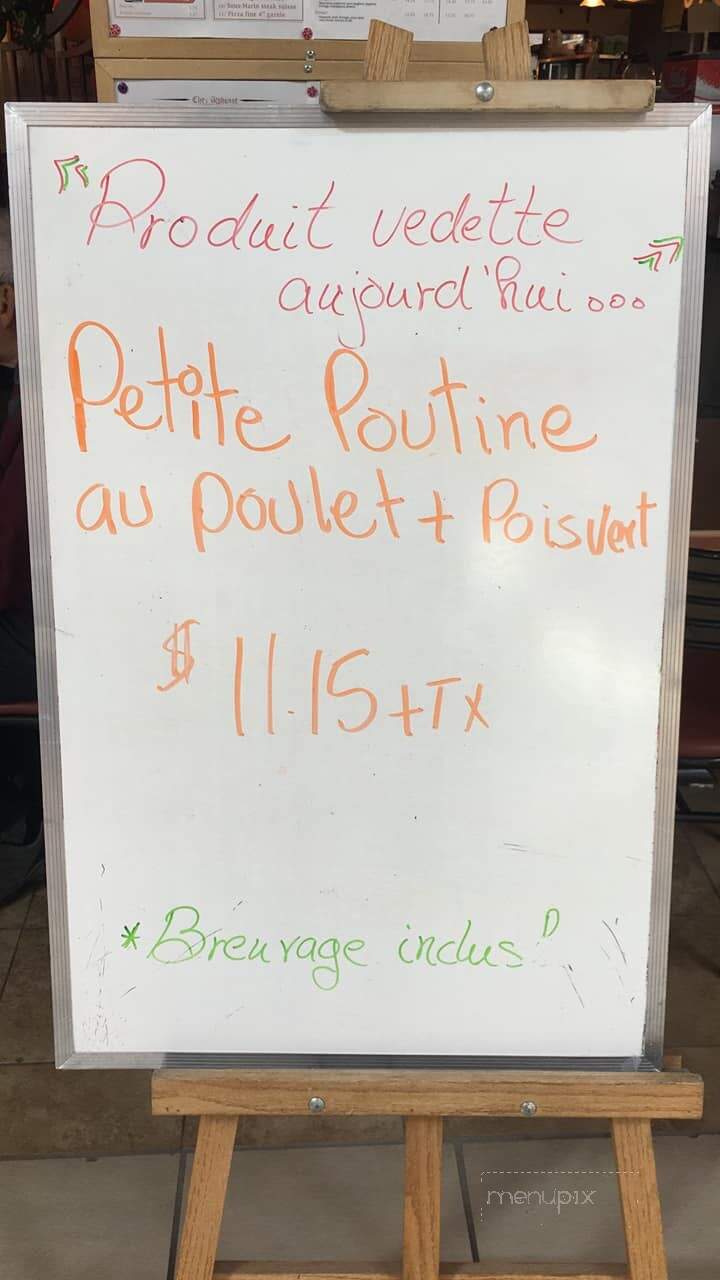 (1) Sous-Marin steak suisse
(1) Pizza fine 4" garnie
Chez Alphonse
« Produit vedette
aujourd'hui... »
Petite Poutine
au poulet + Pois vert
$ 11.15 + Tx
* Breuvage inclus
menupix